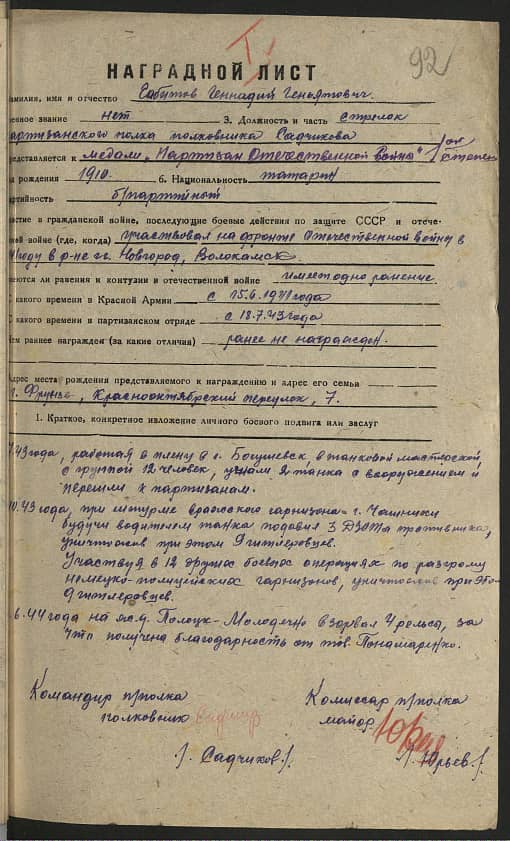 92
НАГРАДНОЙ ЛИСТ
амилия, имя и отчество Сабитов Геннадий Геньятович.
нное звание нет 3. Должность и часть стрелок
артизанского полка полковника Садчикова
едставляется к медали „Партизан Отечественной Войны" 1 ой степени
рождения 1910. 6. Национальность татарин
артийность б/партийный
астие в гражданской войне, последующие боевые действия по защите СССР и отече-
ной войне (где, когда) участвовал на фронте Отечественной войны в
году в р-не гг. Новгород, Волокамск.
еются ли ранения и контузии в отечественной войне имеет одно ранение.
какого времени в Красной Армии с 15.6.1941 года
С какого времени в партизанском отряде с 18.7.43 года
ем раннее награжден (за какие отличия) ранее не награжден.
Адрес места рождения представляемого к награждению и адрес его семьи
г. Фрунзе, Краснооктябрский переулок, 7.
1. Краткое, конкретное изложение личного боевого подвига или заслуг
7.43 года, работая в плену в г. Боцшевск в танковой мастерской,
с группой 12 человек, угнал 2 танка с вооружением и
перешли к партизанам.
10.43 года, при штурме вражеского гарнизона г. Чашники
будучи водителем танка подавил 3 ДЗОТа противника,
уничтожив при этом 9 гитлеровцев.
Участвуя в 12 других боевых операциях по разгрому
немецко-полицейских гарнизонов, уничтожив при этом
9 гитлеровцев.
6.44 года на ж.д. Полоцк-Молодечно взорвал 4 рельса, за
что получена благодарность от тов. Понамаренко.
Командир п/полка Комиссар п/полка
полковник майор
/. Садчиков./. /. Юрьев./.